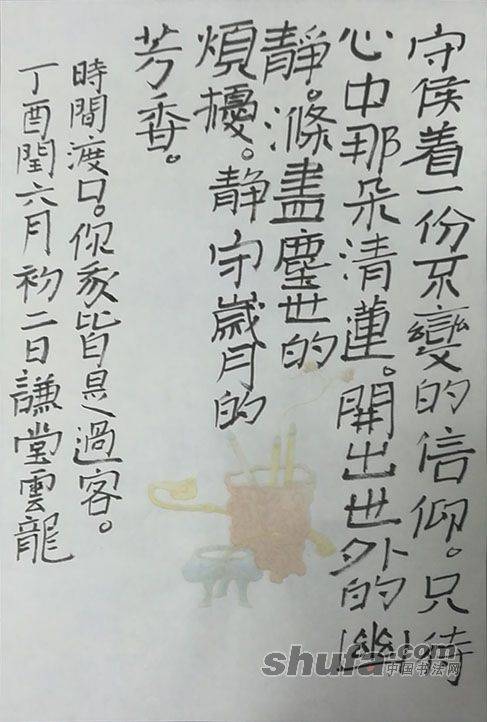 守侯着一份不變的信仰。只待
心中那朵清蓮。開出世外的幽
靜。滌盡塵世的
煩擾。静守歲月的
芳香。
時間渡口。你我皆是過客。
丁酉閏六月初二日謙堂雲龍
shufa.com
中国书法网